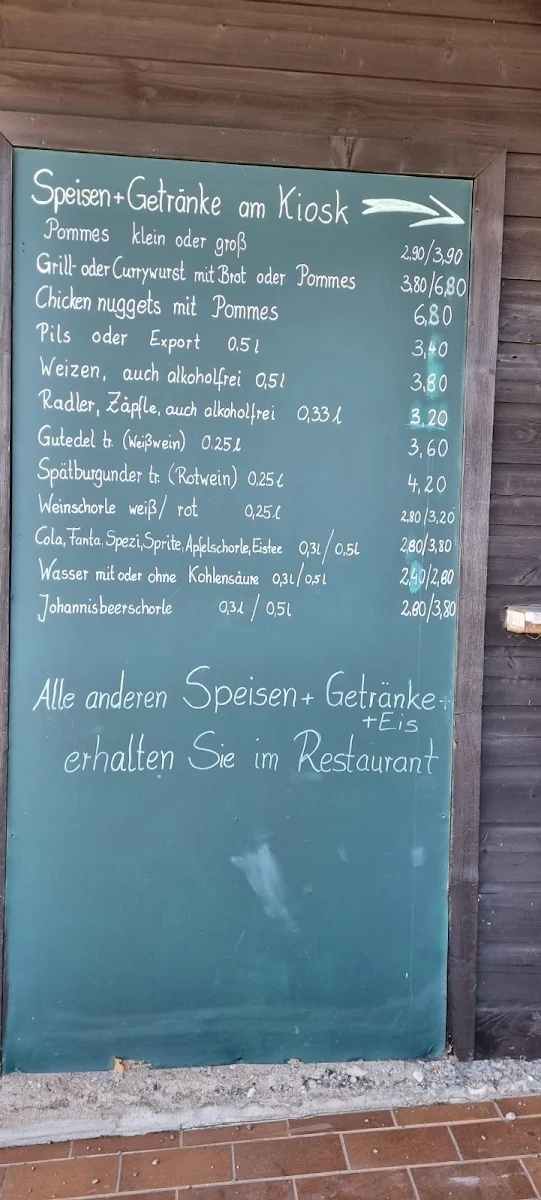 Speisen+Getränke am Kiosk
Pommes klein oder groß 2,90/3,90
Grill- oder Currywurst mit Brot oder Pommes 3,80/6,80
Chicken nuggets mit Pommes 6,80
Pils oder Export 0.5l 3,40
Weizen, auch alkoholfrei 0,5l 3,80
Radler, Zäpfle, auch alkoholfrei 0,33l 3,20
Gutedel tr. (Weißwein) 0.25l 3,60
Spätburgunder tr. (Rotwein) 0,25l 4,20
Weinschorle weiß/ rot 0,25l 2,80/3,20
Cola, Fanta, Spezi, Sprite, Apfelschorle, Eistee 0,3l/0,5l 2,80/3,80
Wasser mit oder ohne Kohlensäure 0,3l/0,5l 2,40/2,80
Johannisbeerschorle 0,3l / 0,5l 2.80/3,80
Alle anderen Speisen+ Getränke+
+Eis
erhalten Sie im Restaurant